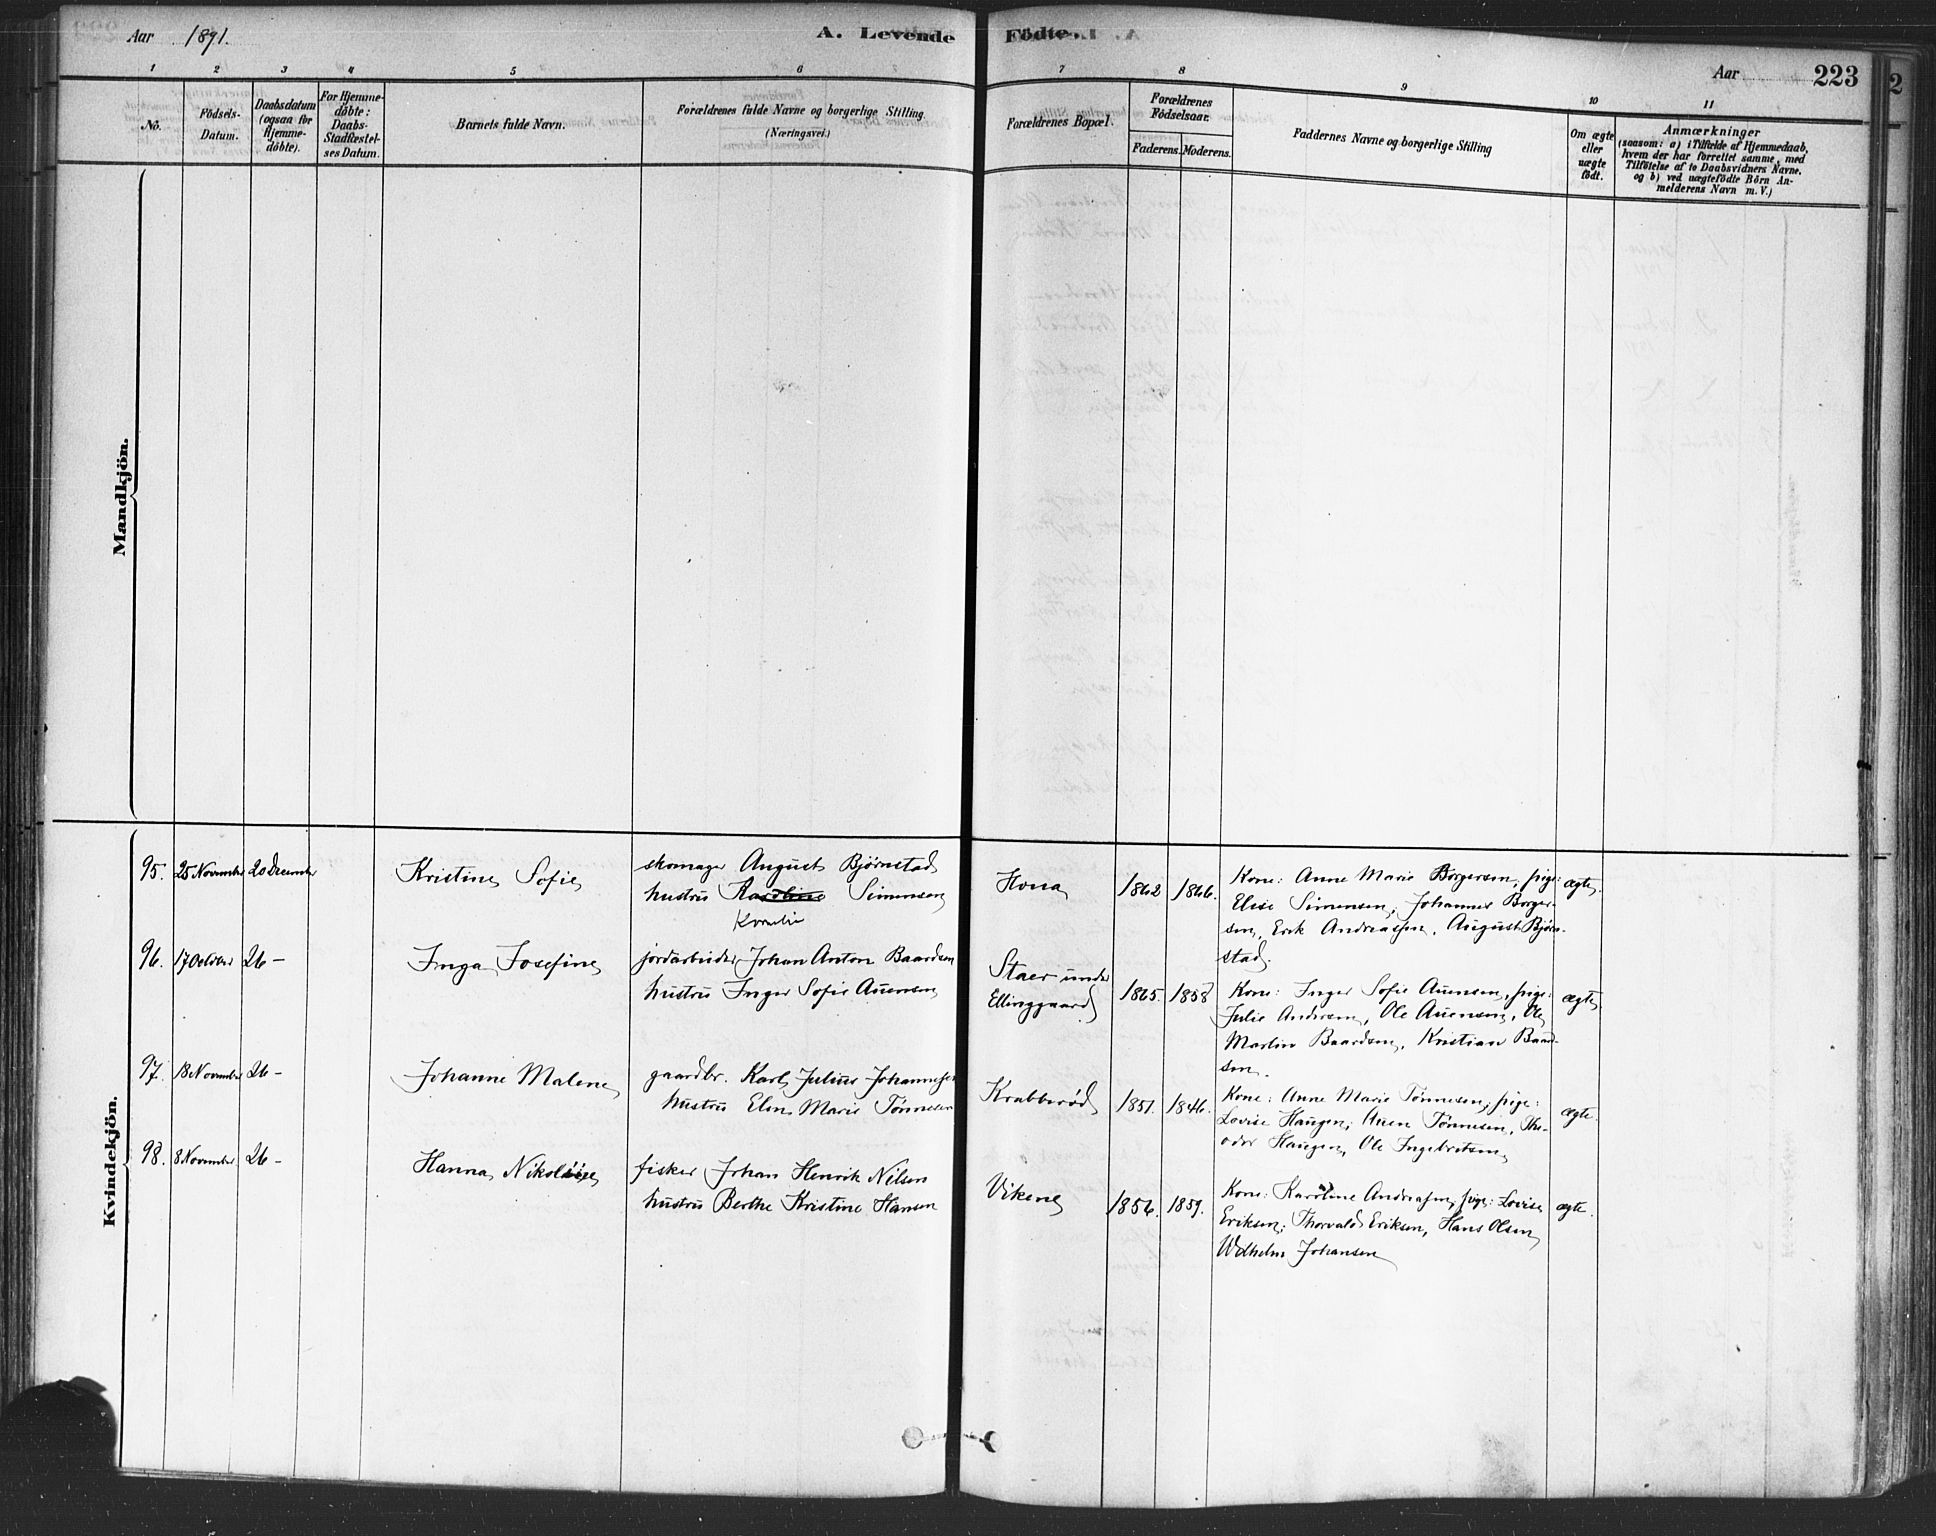 Aar 1891.
A. Levende
Födte.
Aar
223
1 2 3 4 5 6 7 8 9 10 11
No.
Födsels-
Datum.
Daabsdatum
(ogsaa for
Hjemme-
döbte).
For Hjemme-
döbte:
Daabs-
Stadfæstel-
ses Datum.
Barnets fulde Navn.
Forældrenes fulde Navne og borgerlige Stilling
(Næringsvei.)
Forældrenes Bopæl.
Forældrenes
Födselsaar.
Faderens. Moderens.
Faddernes Navne og borgerlige Stilling
Om ægte
eller
uægte
födt.
Anmærkninger
(saasom: a) i Tilfælde af Hjemmedaab,
hvem der har forrettet samme, med
Tilföielse af to Daabsvidners Navne,
og b) ved uægtefödte Börn An-
melderens Navn m. V.)
Mandkjön.
Kvindekjön.
95. 25 November 20 December
Kristine Sofie
skomager August Bjørnstad
hustru Karoline Simensen
Kornelie
Hona
1862 1866.
Kone: Anne Marie Borgersen, pige:
Elise Simensen, Johannes Borger-
sen, Erik Andreassen, August Bjørn-
stad.
ægte.
96. 17 October 26 -
Inga Josefine
jordarbeider Johan Anton Baardsen
hustru Inger Sofie Auensen
Staer under
Ellinggaard
1865. 1858
Kone: Inger Sofie Auensen, pige:
Julie Andersen, Ole Auensen, Ole
Martin Baardsen, Kristian Baard-
sen.
ægte.
97. 18 November 26 -
Johanne Malene
gaardbr. Karl Julius Johannesen
hustru Elen Marie Tønnesen
Krabberød
1851. 1846.
Kone: Anne Marie Tønnesen, pige:
Lovise Haugen, Auen Tønnesen, The-
odor Haugen, Ole Ingebretsen
ægte.
98. 8 November 26 -
Hanna Nikoline
fisker Johan Henrik Nilsen
hustru Berthe Kristine Hansen
Vikene
1856. 1859.
Kone: Karoline Andreasen, pige: Lovise
Eriksen; Thorvald Eriksen, Hans Olsen
Wilhelm Johansen
ægte.